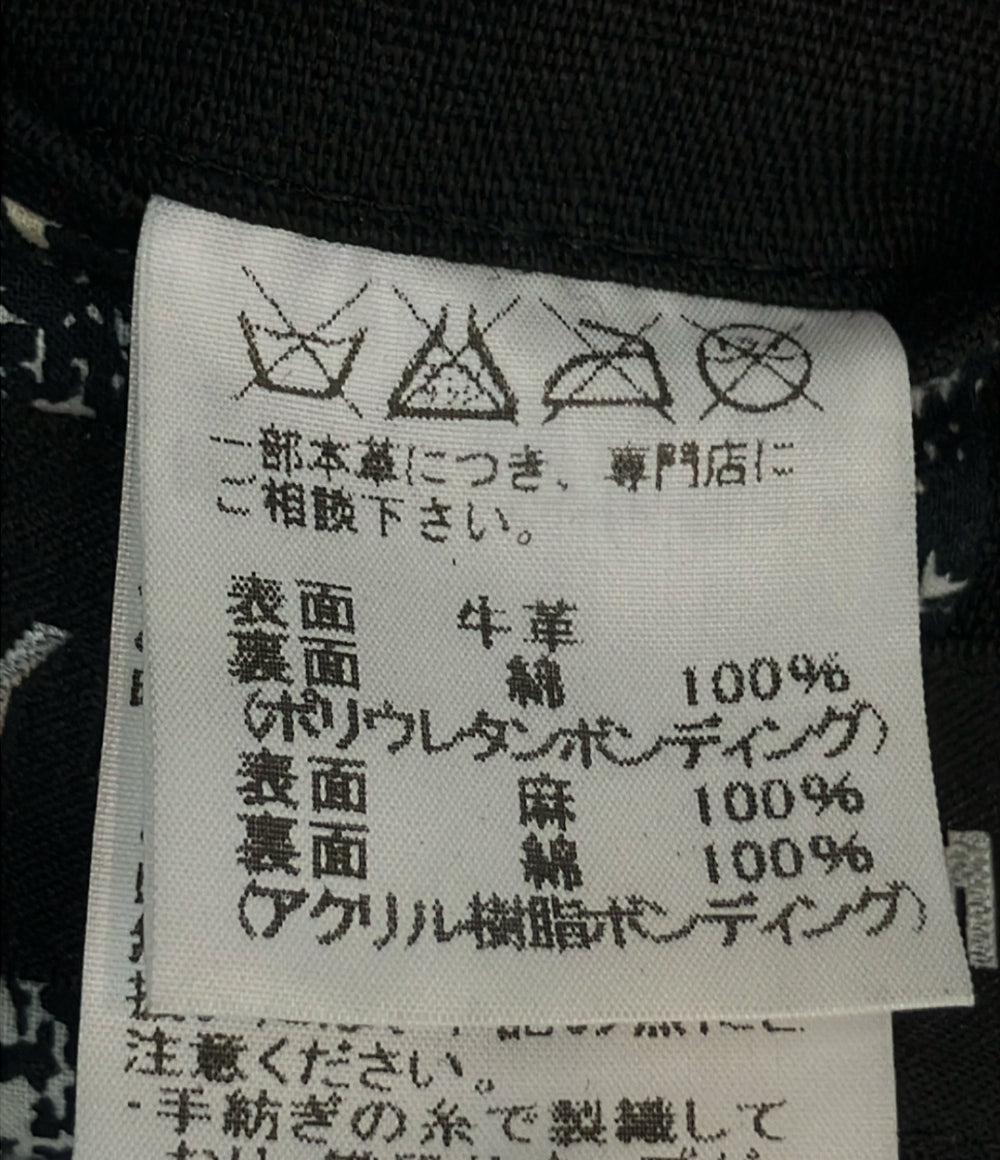 一部本革につき、専門店に
ご相談下さい。
表面 牛革
裏面 綿 100%
(ポリウレタンボンディング)
表面 麻 100%
裏面 綿 100%
(アクリル樹脂ボンディング)
注意ください。
・手紡ぎの糸で製織して